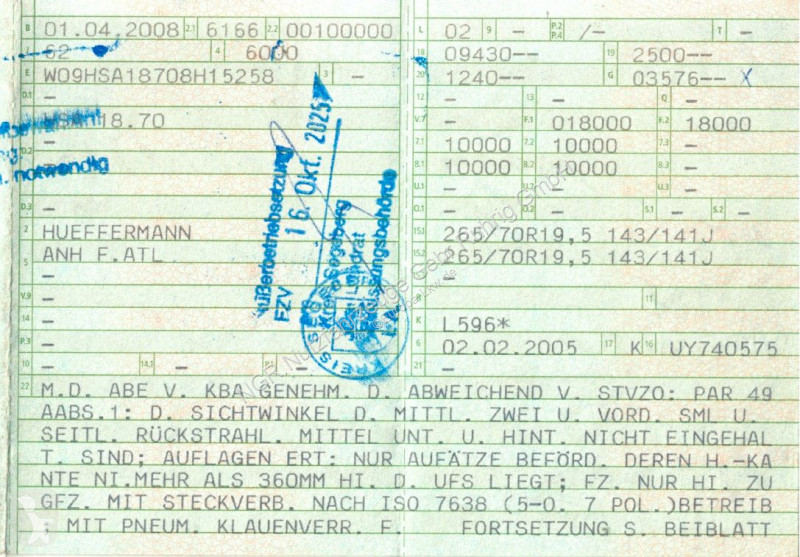 B 01.04.2008 2.1 6166 2.2 00100000
J 62 4 6000
E W09HSA18708H15258 3 —
D.1 —
HSA 18.70
notwendig
D.3 —
2 HUEFFERMANN
5 ANH F.ATL
V.9 —
14 —
P.3 —
10 — 14.1 — P.1 —
L 02 9 — P.2 P.4 /— T —
18 09430—— 19 2500——
20 1240—— G 03576—— X
12 — 13 — Q —
V.7 — F.1 018000 F.2 18000
7.1 10000 7.2 10000 7.3 —
8.1 10000 8.2 10000 8.3 —
U.1 — U.2 — U.3 —
O.1 — O.2 — S.1 — S.2 —
15.1 265/70R19,5 143/141J
15.2 265/70R19,5 143/141J
15.3 —
R — 11 —
K L596*
6 02.02.2005 17 K 16 UY740575
21 —
22 M.D. ABE V. KBA GENEHM. D. ABWEICHEND V. STVZO: PAR 49
AABS.1: D. SICHTWINKEL D. MITTL. ZWEI U. VORD. SML U.
SEITL. RÜCKSTRAHL. MITTEL UNT. U. HINT. NICHT EINGEHAL
T. SIND; AUFLAGEN ERT: NUR AUFÄTZE BEFÖRD. DEREN H.-KA
NTE NI.MEHR ALS 360MM HI. D. UFS LIEGT; FZ. NUR HI. ZU
GFZ. MIT STECKVERB. NACH ISO 7638 (5-O. 7 POL.)BETREIB
; MIT PNEUM. KLAUENVERR. F. FORTSETZUNG S. BEIBLATT
Außerbetriebsetzung
FZV
16. Okt. 2025
Kreis Segeberg
Landrat
Zulassungsbehörde
I.A.
KREIS SEGEBERG